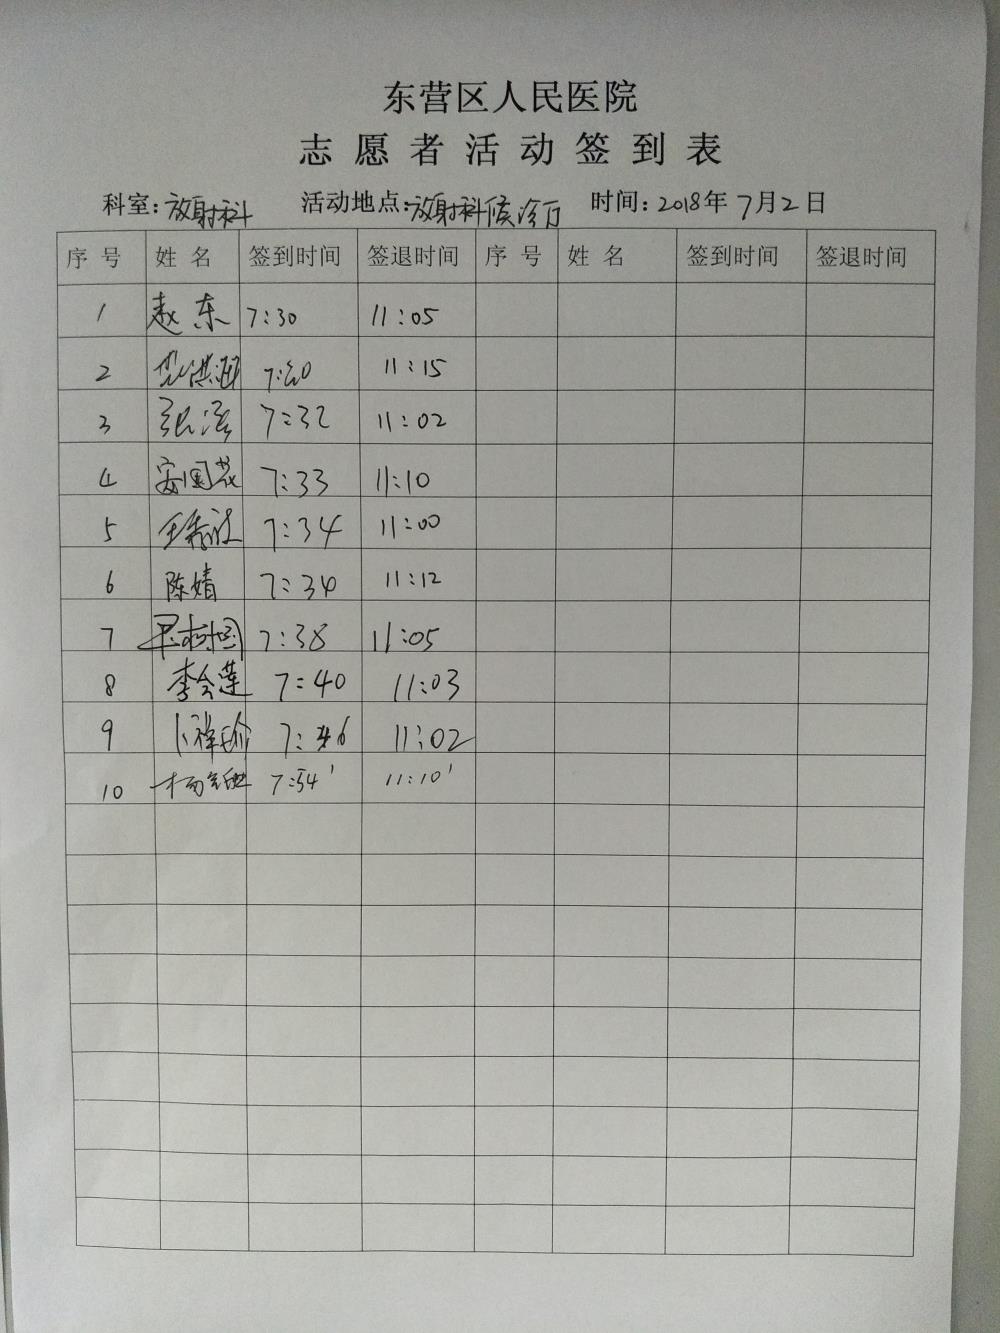 东营区人民医院
志愿者活动签到表
科室:放射科 活动地点:放射科候诊厅 时间:2018年7月2日
序号 姓名 签到时间 签退时间 序号 姓名 签到时间 签退时间
1 赵东 7:30 11:05
2 洪涵 11:15
3 张 7:32 11:02
4 安国花 7:33 11:10
5 王 7:34 11:00
6 陈婧 7:34 11:12
7 树国 7:38 11:05
8 李会莲 7:40 11:03
9 卜祥瑜 7:46 11:02
10 杨 7:54' 11:10'